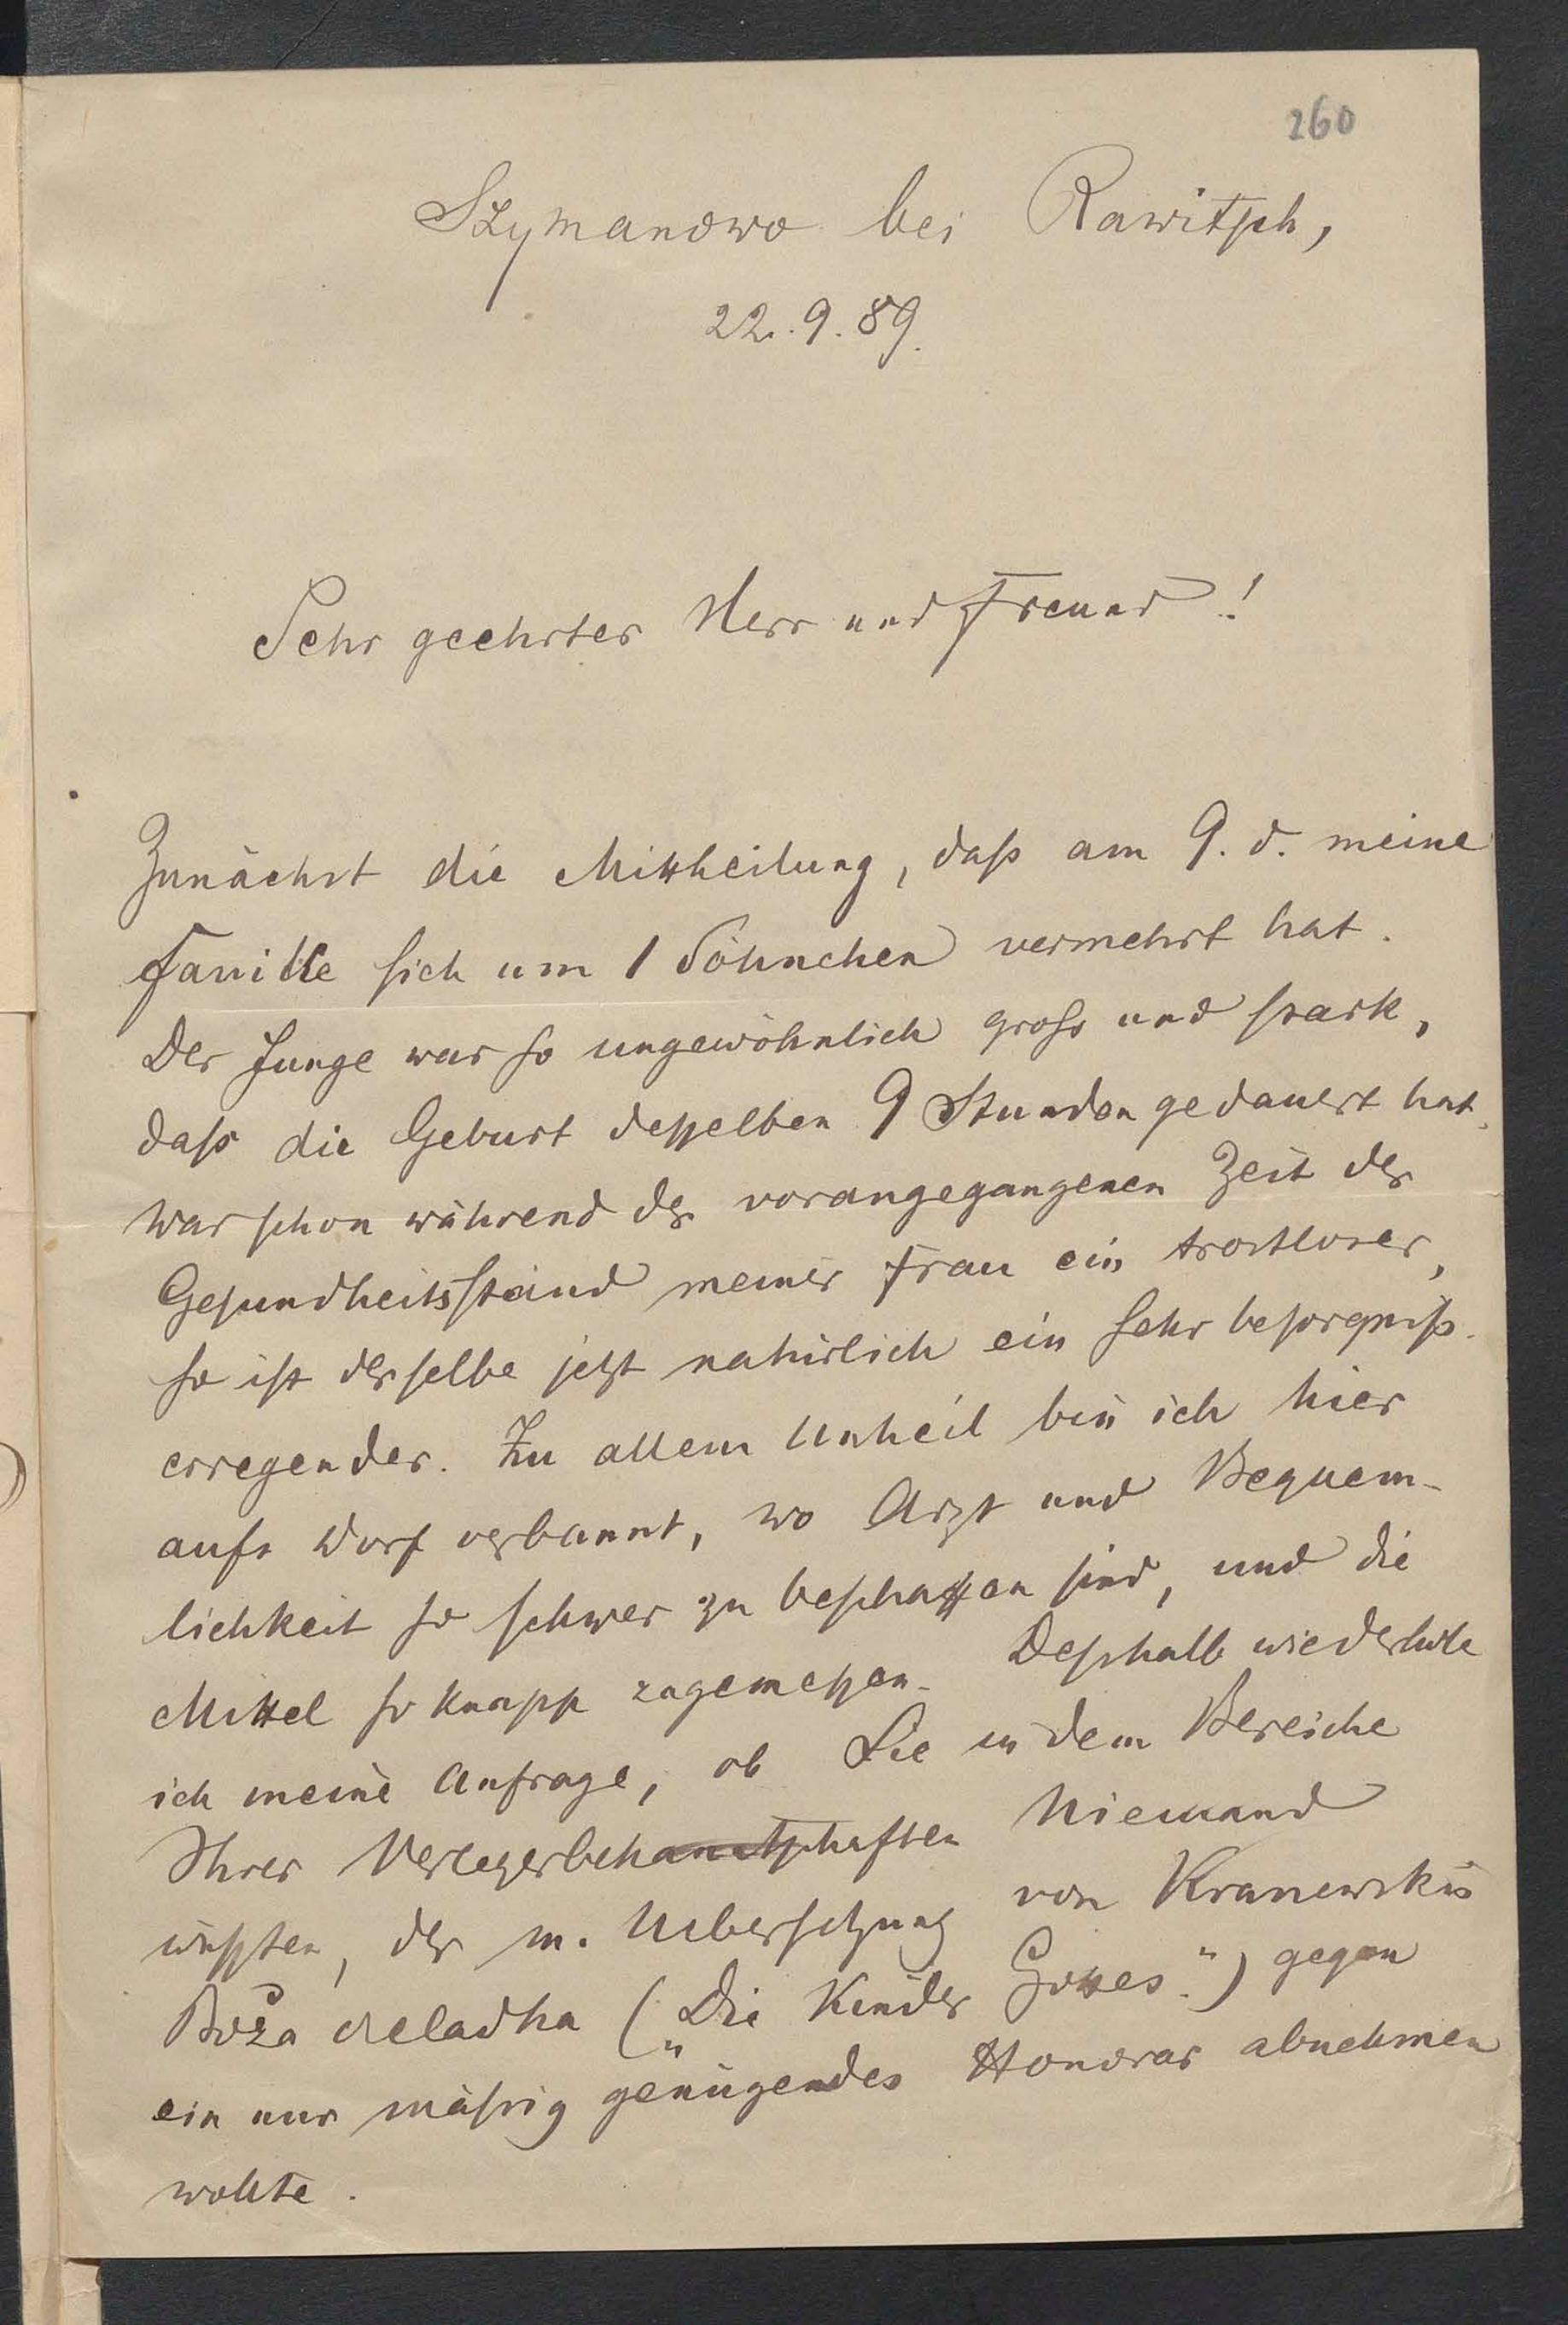 260
Szymanowo bei Rawitsch,
22.9.89.
Sehr geehrter Herr und Freund!
Zunächst die Mittheilung, daß am 9. d. meine
Familie sich um 1 Söhnchen vermehrt hat.
Der Junge war so ungewöhnlich groß und stark,
daß die Geburt desselben 9 Stunden gedauert hat.
War schon während der vorangegangenen Zeit der
Gesundheitsstand meiner Frau ein trostloser,
so ist derselbe jetzt natürlich ein sehr besorgniß-
erregender. Zu allem Unheil bin ich hier
aufs Dorf verbannt, wo Arzt und Bequem-
lichkeit so schwer zu beschaffen sind, und die
Mittel so knapp zugemessen. Deßhalb wiederhole
ich meine Anfrage, ob Sie in dem Bereiche
Ihrer Niemand
wüßten, der m. Uebersetzung von
Boża czeladka („Die Kinder Gottes") gegen
ein nur mäßig genügendes Honorar abnehmen
wollte.